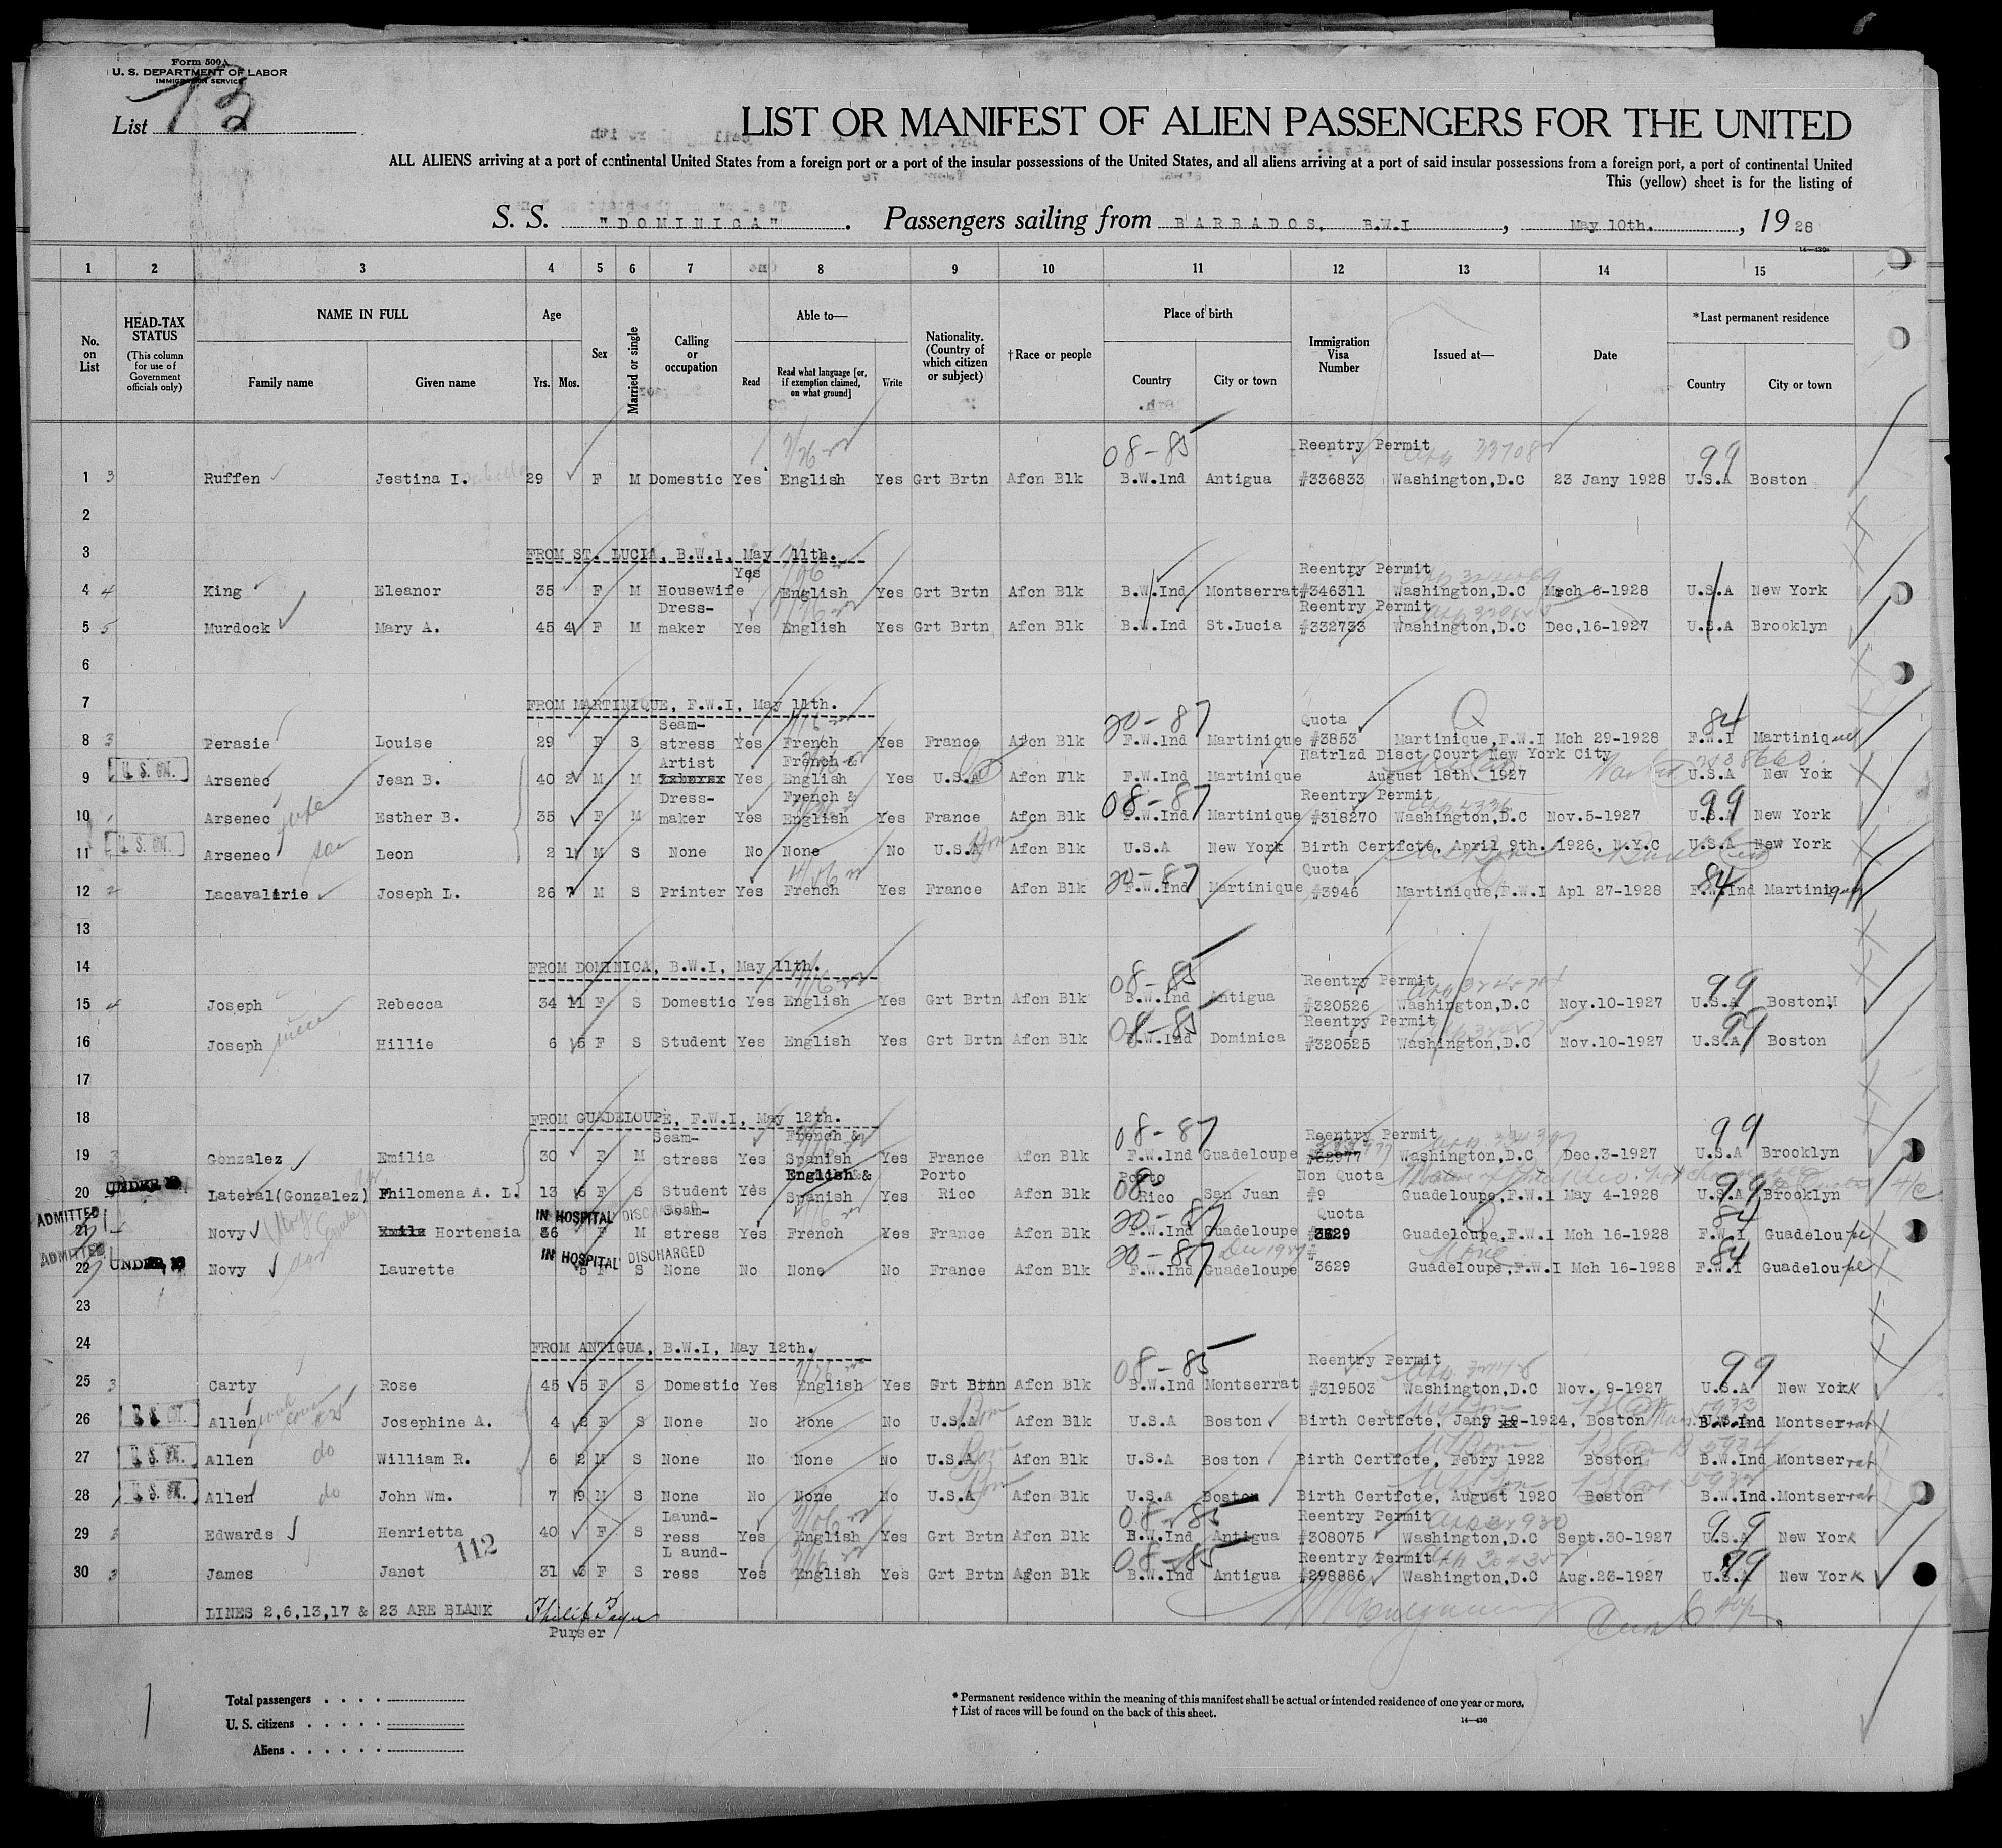 Form 500A
U. S. DEPARTMENT OF LABOR
IMMIGRATION SERVICE
List 13
LIST OR MANIFEST OF ALIEN PASSENGERS FOR THE UNITED
ALL ALIENS arriving at a port of continental United States from a foreign port or a port of the insular possessions of the United States, and all aliens arriving at a port of said insular possessions from a foreign port, a port of continental United
This (yellow) sheet is for the listing of
S. S. "DOMINICA". Passengers sailing from BARBADOS. B.W.I, May 10th., 1928
14—430a
1 2 3 4 5 6 7 8 9 10 11 12 13 14 15
No. on List
HEAD-TAX STATUS (This column for use of Government officials only)
NAME IN FULL Family name Given name
Age Yrs. Mos.
Sex
Married or single
Calling or occupation
Able to— Read Read what language [or, if exemption claimed, on what ground] Write
Nationality. (Country of which citizen or subject)
†Race or people
Place of birth Country City or town
Immigration Visa Number
Issued at—
Date
*Last permanent residence Country City or town
08-85 Reentry Permit 99
1 3 Ruffen Jestina I. 29 F M Domestic Yes English Yes Grt Brtn Afcn Blk B.W.Ind Antigua #336833 Washington,D.C 23 Jany 1928 U.S.A Boston
2
3 FROM ST. LUCIA, B.W.I, May 11th.
Yes Reentry Permit
4 4 King Eleanor 35 F M Housewife English Yes Grt Brtn Afcn Blk B.W.Ind Montserrat #346311 Washington,D.C Mrch 6-1928 U.S.A New York
Dress- Reentry Permit
5 5 Murdock Mary A. 45 4 F M maker Yes English Yes Grt Brtn Afcn Blk B.W.Ind St.Lucia #332733 Washington,D.C Dec,16-1927 U.S.A Brooklyn
6
7 FROM MARTINIQUE, F.W.I, May 11th.
Seam- 20-87 Quota Q 84
8 3 Perasie Louise 29 F S stress Yes French Yes France Afcn Blk F.W.Ind Martinique #3853 Martinique,F.W.I Mch 29-1928 F.W.I Martinique
U. S. CIT. Artist French & Natrlzd Disct Court New York City
9 Arsenec Jean B. 40 2 M M Yes English Yes U.S.A Afcn Blk F.W.Ind Martinique August 18th. 1927 U.S.A New York
Dress- French & 08-87 Reentry Permit 99
10 Arsenec wife Esther B. 35 F M maker Yes English Yes France Afcn Blk F.W.Ind Martinique #318270 Washington,D.C Nov.5-1927 U.S.A New York
U. S. CIT.
11 Arsenec son Leon 2 1 M S None No None No U.S.A Born Afcn Blk U.S.A New York Birth Certfcte, April 9th. 1926, N.Y.C U.S.A New York
20-87 Quota 84
12 2 Lacavalerie Joseph L. 26 7 M S Printer Yes French Yes France Afcn Blk F.W.Ind Martinique #3946 Martinique,F.W.I Apl 27-1928 F.W.Ind Martinique
13
14 FROM DOMINICA, B.W.I, May 11th.
08-85 Reentry Permit 99
15 4 Joseph Rebecca 34 11 F S Domestic Yes English Yes Grt Brtn Afcn Blk B.W.Ind Antigua #320526 Washington,D.C Nov.10-1927 U.S.A Boston
08-85 Reentry Permit 99
16 Joseph niece Hillie 6 5 F S Student Yes English Yes Grt Brtn Afcn Blk B.W.Ind Dominica #320525 Washington,D.C Nov.10-1927 U.S.A Boston
17
18 FROM GUADELOUPE, F.W.I, May 12th.
Seam- French & 08-87 Reentry Permit 99
19 3 Gonzalez Emilia 30 F M stress Yes Spanish Yes France Afcn Blk F.W.Ind Guadeloupe #32977 Washington,D.C Dec.3-1927 U.S.A Brooklyn
UNDER 16 English & Porto Porto Non Quota 99
20 Lateral(Gonzalez) Philomena A. I. 13 6 F S Student Yes Spanish Yes Rico Afcn Blk Rico San Juan #9 Guadeloupe,F.W.I May 4-1928 U.S.A Brooklyn
ADMITTED IN HOSPITAL DISCHARGED Seam- 20-87 Quota 84
21 Novy Hortensia 36 F M stress Yes French Yes France Afcn Blk F.W.Ind Guadeloupe #3629 Guadeloupe,F.W.I Mch 16-1928 F.W.I Guadeloupe
ADMITTED UNDER 16 IN HOSPITAL DISCHARGED 20-87 # 84
22 Novy Laurette 5 F S None No None No France Afcn Blk F.W.Ind Guadeloupe 3629 Guadeloupe,F.W.I Mch 16-1928 F.W.I Guadeloupe
23
24 FROM ANTIGUA, B.W.I, May 12th.
08-85 Reentry Permit 99
25 3 Carty Rose 45 5 F S Domestic Yes English Yes Grt Brtn Afcn Blk B.W.Ind Montserrat #319503 Washington,D.C Nov. 9-1927 U.S.A New York
U. S. CIT.
26 Allen Josephine A. 4 F S None No None No U.S.A Born Afcn Blk U.S.A Boston Birth Certfcte, Jany 1924, Boston B.W.Ind Montserrat
U. S. CIT.
27 Allen do William R. 6 2 M S None No None No U.S.A Born Afcn Blk U.S.A Boston Birth Certfcte, Febry 1922 Boston B.W.Ind Montserrat
U. S. CIT.
28 Allen do John Wm. 7 9 M S None No None No U.S.A Born Afcn Blk U.S.A Boston Birth Certfcte, August 1920 Boston B.W.Ind.Montserrat
Laund- 08-85 Reentry Permit 99
29 3 Edwards Henrietta 40 F S ress Yes English Yes Grt Brtn Afcn Blk B.W.Ind Antigua #308075 Washington,D.C Sept.30-1927 U.S.A New York
112 Laund- 08-85 Reentry Permit 99
30 3 James Janet 31 F S ress Yes English Yes Grt Brtn Afcn Blk B.W.Ind Antigua #298886 Washington,D.C Aug.23-1927 U.S.A New York
LINES 2,6,13,17 & 23 ARE BLANK
Purser
Total passengers . . . .
U. S. citizens . . . . .
Aliens . . . . . .
* Permanent residence within the meaning of this manifest shall be actual or intended residence of one year or more.
† List of races will be found on the back of this sheet.
14—430